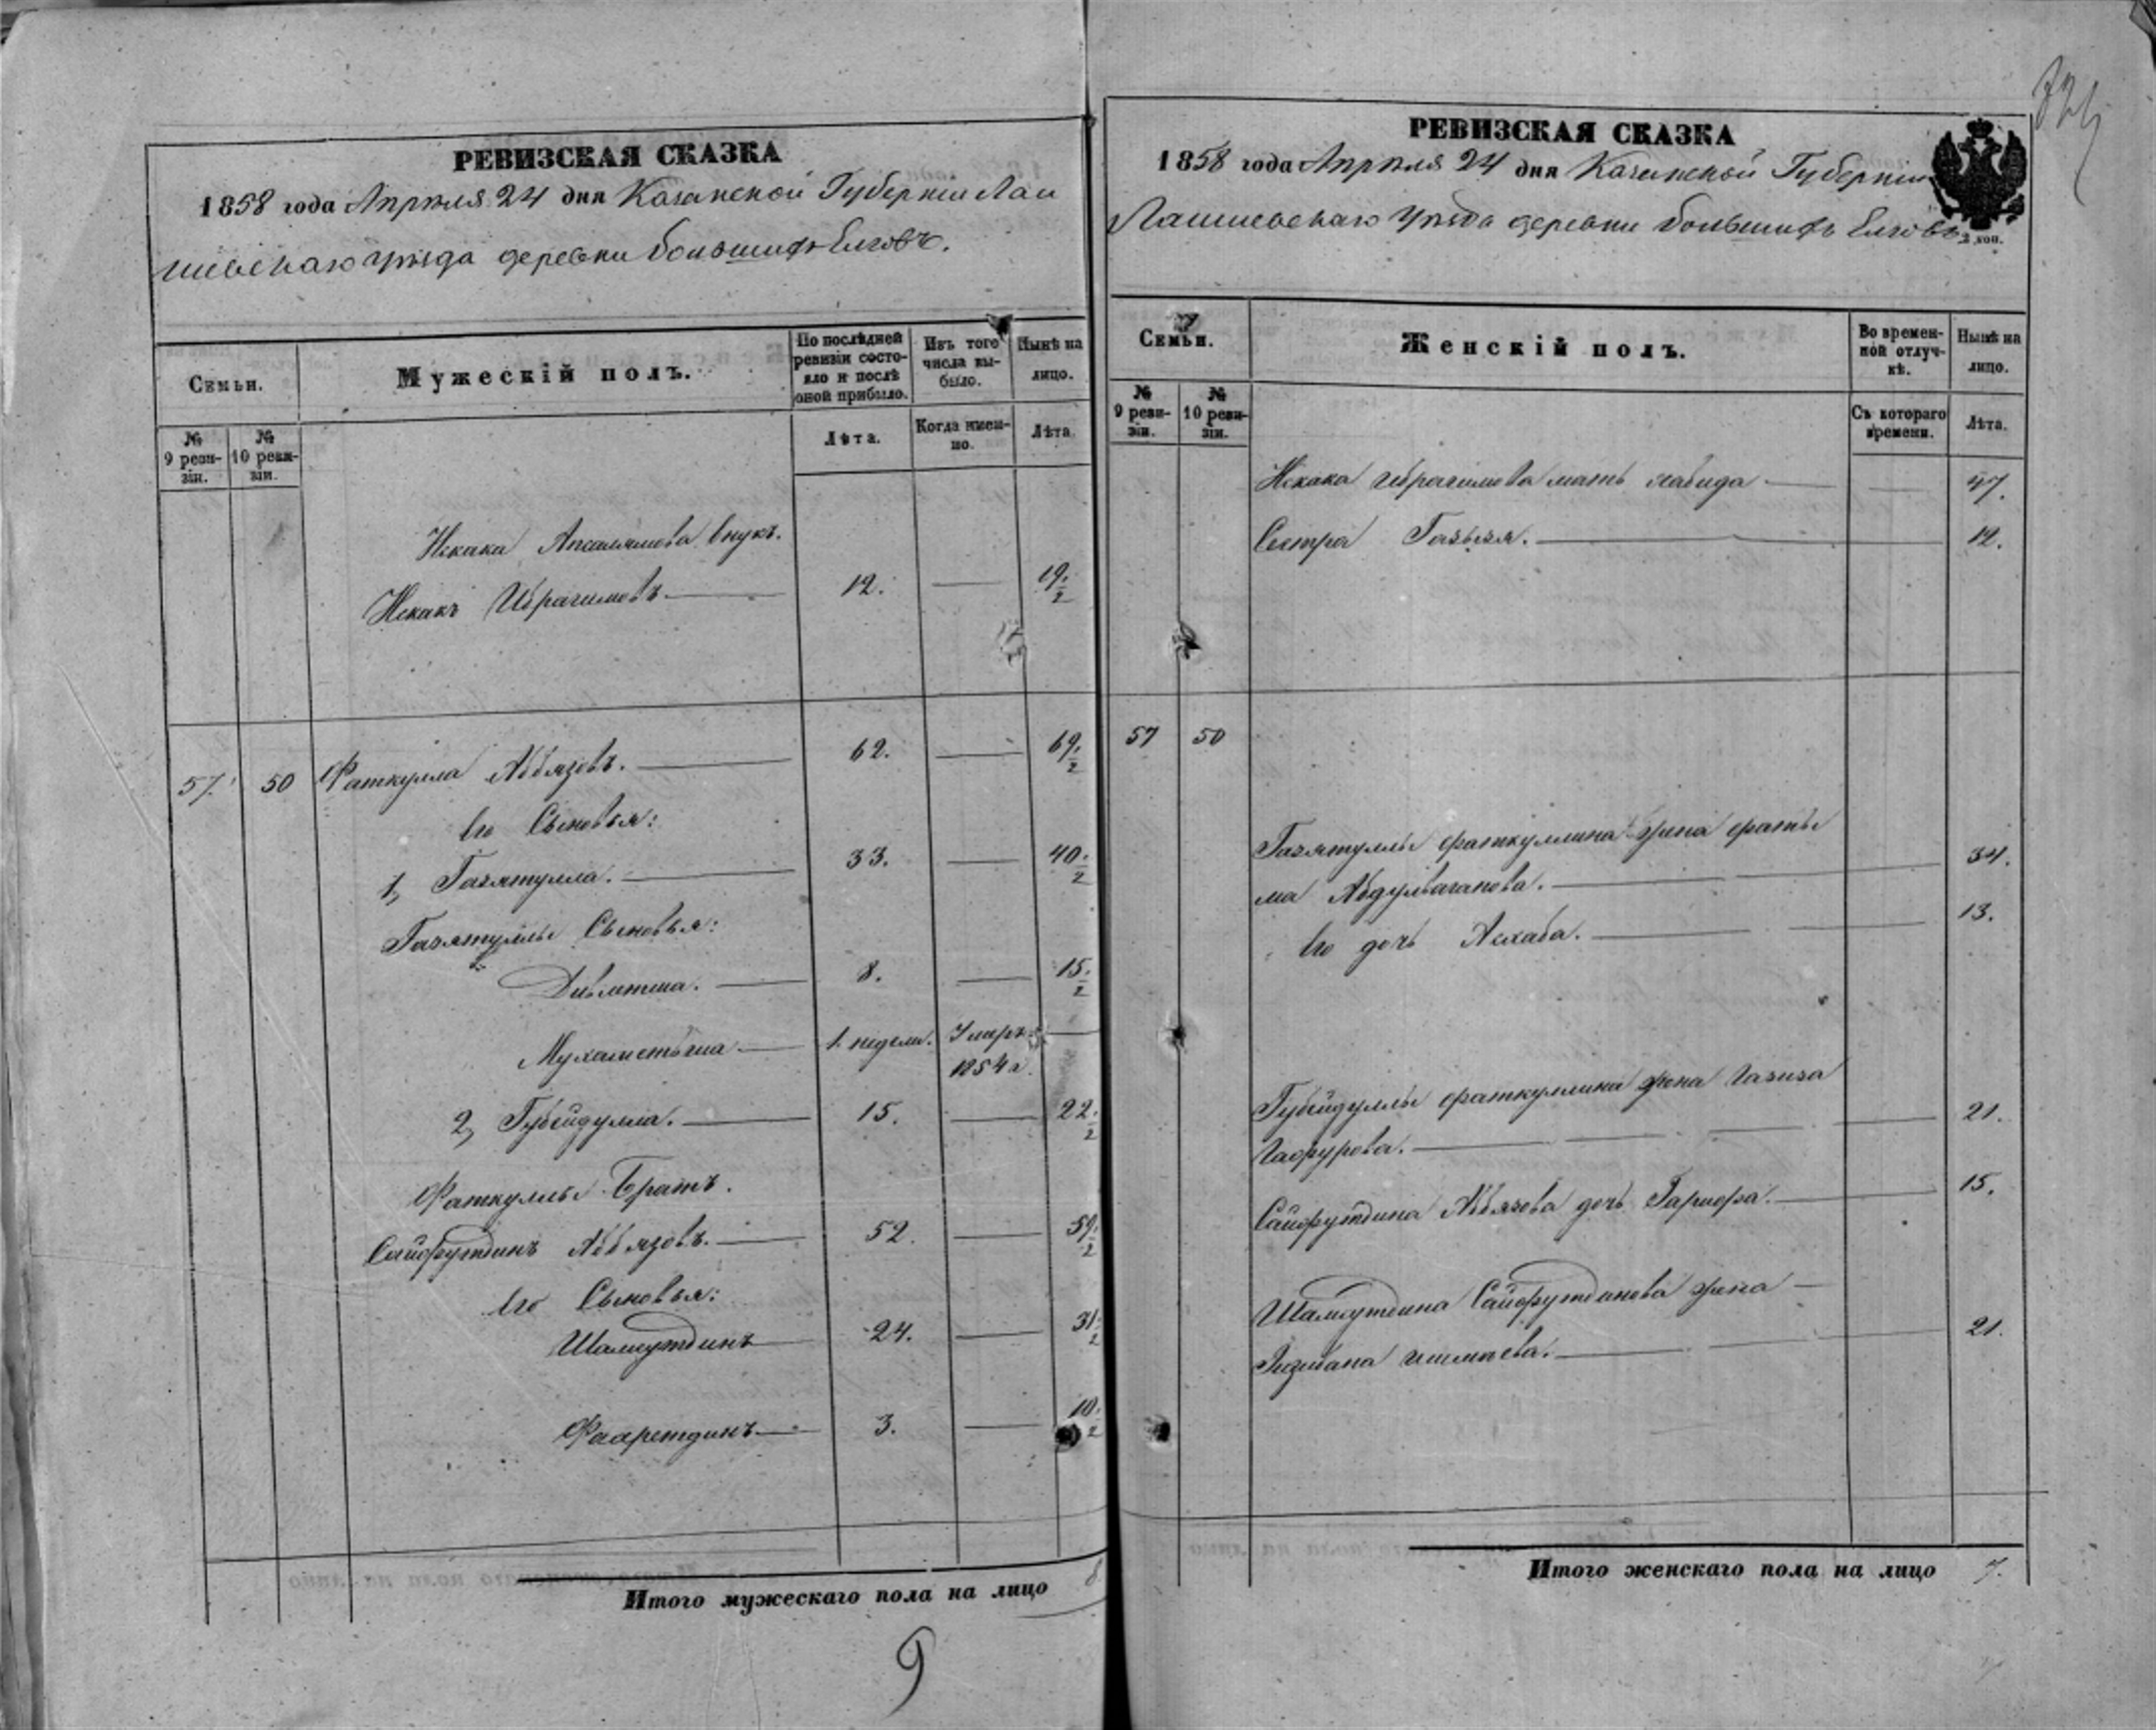 РЕВИЗСКАЯ СКАЗКА
1858 года Апреля 24 дня Казанской Губернии Лаи
шевскаго уезда деревни большихъ Елговъ.
Семьи.
Мужескій полъ.
По послѣдней ревизіи состояло и послѣ оной прибыло.
Изъ того числа выбыло.
Нынѣ на лицо.
№ 9 ревизіи.
№ 10 ревизіи.
Лѣта.
Когда именно.
Лѣта.
Искака Апсалямова внукъ.
Искакъ Ибрагимовъ 12. 19 1/2
57. 50 Фаткулла Аббязовъ. 62. 69 1/2
Его Сыновья:
1, Газятулла. 33. 40 1/2
Газятуллы Сыновья:
Девлетша. 8. 15 1/2
Мухаметьша 1. недели. Умеръ
1854 г.
2, Губейдулла. 15. 22 1/2
Фаткуллы Братъ.
Сайфутдинъ Аббязовъ. 52. 59 1/2
Его Сыновья:
Шамсутдинъ 24. 31 1/2
Фахретдинъ 3. 10 1/2
Итого мужескаго пола на лицо 8
9
РЕВИЗСКАЯ СКАЗКА
1858 года Апреля 24 дня Казанской Губернии
Лаишевскаго Уезда деревни большихъ Елговъ
Семьи.
Женскій полъ.
Во временной отлучкѣ.
Нынѣ на лицо.
№ 9 ревизіи.
№ 10 ревизіи.
Съ котораго времени.
Лѣта.
Искака Ибрагимова мать 47.
Сестра 12.
57 50
Газятуллы фаткуллина жена фать
ма Абдулваганова. 34.
Его дочь Асхаба. 13.
Губейдуллы фаткуллина жена Газиза
Гафурова. 21.
Сайфутдина Аббязова дочь 15.
Шамсутдина Сайфутдинова жена
21.
Итого женскаго пола на лицо 7.